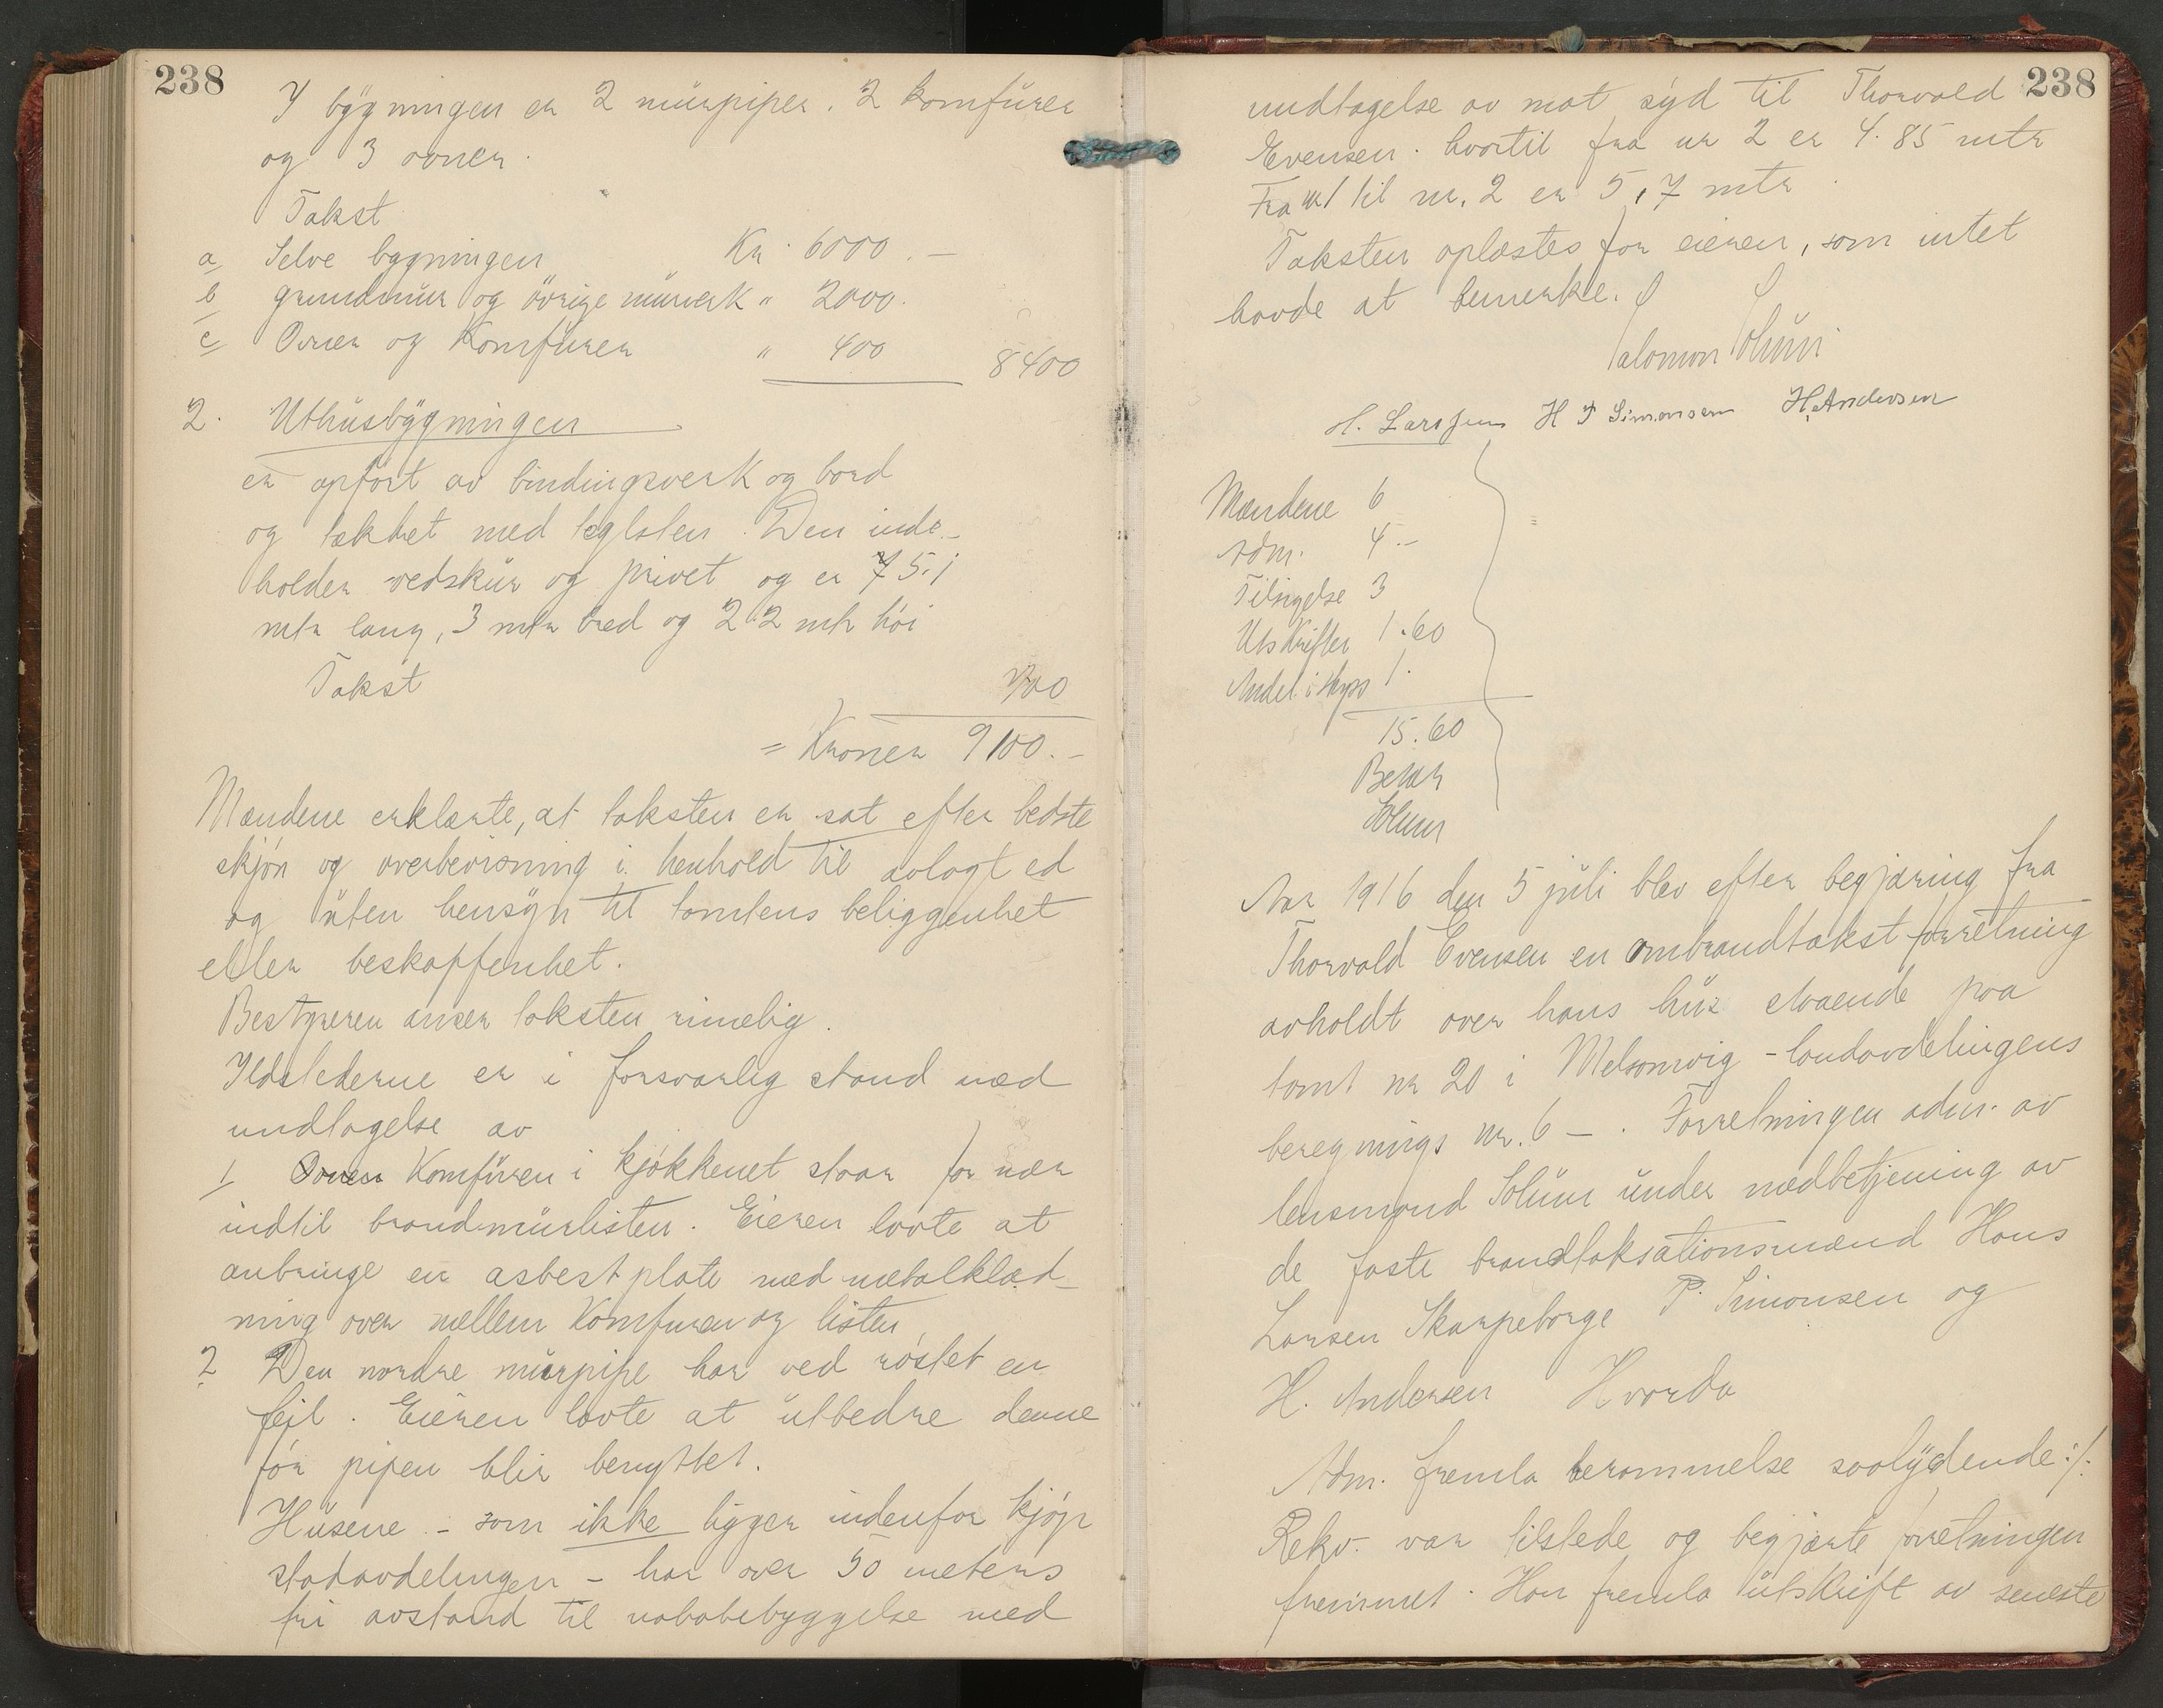 238
I bygningen er 2 murpiper. 2 komfurer
og 3 ovner.
Takst
a Selve bygningen Kr. 6000.-
b grundmur og övrige murverk " 2000.
c Ovner og Komfurer " 400 8400
2. Uthusbygningen
er opfört av bindingsverk og bord
og tækket med teglsten. Den inde-
holder vedskur og privet og er 7 5.1
mtr lang, 3 mtr bred og 2.2 mtr höi
Takst 700
= Kroner 9100.-
Mændene erklærte, at taksten er sat efter bedste
skjön og overbevisning i henhold til avlagt ed
og uten hensyn til tomtens beliggenhet
eller beskaffenhet.
Bestyreren anser taksten rimelig.
Ildstederne er i forsvarlig stand med
undtagelse av
1 Ovnen Komfuren i kjökkenet staar for nær
indtil brandmurlisten. Eieren lovte at
anbringe en asbestplate med metalklæd-
ning over mellem Komfuren og listen,
2 Den nordre murpipe har ved röstet en
feil. Eieren lovte at utbedre denne
för pipen blir benyttet.
Husene - som ikke ligger indenfor kjöp
stadavdelingen - har over 50 meters
fri avstand til nabobebyggelse med
238
undtagelse av mot syd til Thorvald
Evensen. hvortil fra nr 2 er 4.85 mtr
Fra nr 1 til nr. 2 er 5,7 mtr.
Taksten oplæstes for eieren, som intet
havde at bemerke.
Salomon Solum
H. Larssen H P Simonsen H. Andersen
Mændene 6
Adm. 4.-
Tilsigelse 3
Utskrifter 1.60
Andel i skyss 1.
15.60
Betalt
Solum
Aar 1916 den 5 juli blev efter begjæring fra
Thorvald Evensen en ombrandtakst forretning
avholdt over hans hus staaende paa
tomt nr 20 i Melsomvig - landavdelingens
beregnings nr. 6 -. Forretningen adm. av
lensmand Solum under medbetjening av
de faste brandtaksationsmænd Hans
Larsen Skarpeborge P. Simonsen og
H. Andersen Hvorda
Adm. fremla berammelse saalydende :/:
Rekv. var tilstede og begjærte forretningen
fremmet. Han fremla utskrift av seneste